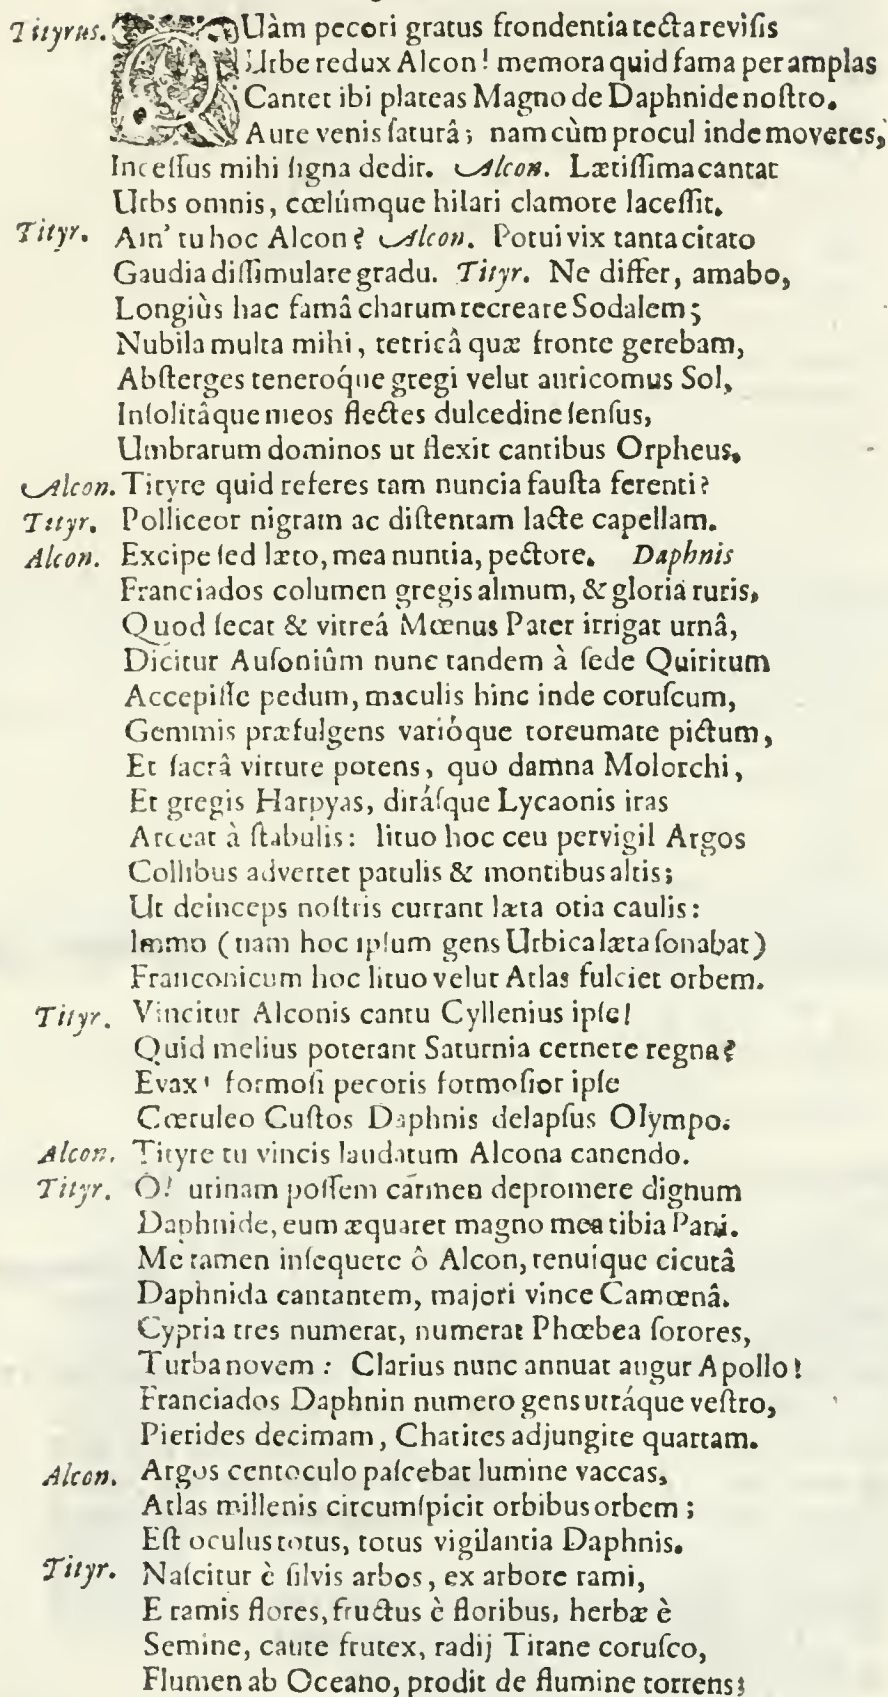 Tityrus. QUàm pecori gratus frondentia tecta revisis
Urbe redux Alcon! memora quid fama per amplas
Cantet ibi plateas Magno de Daphnide nostro.
Aure venis saturâ; nam cùm procul inde moveres,
Incessus mihi signa dedit. Alcon. Lætissima cantat
Urbs omnis, cœlúmque hilari clamore lacessit.
Tityr. Ain' tu hoc Alcon? Alcon. Potui vix tanta citato
Gaudia dissimulare gradu. Tityr. Ne differ, amabo,
Longiùs hac famâ charum recreare Sodalem;
Nubila multa mihi, tetricâ quæ fronte gerebam,
Absterges teneroq́ue gregi velut auricomus Sol,
Insolitâque meos flectes dulcedine sensus,
Umbrarum dominos ut flexit cantibus Orpheus.
Alcon. Tityre quid referes tam nuncia fausta ferenti?
Tityr. Polliceor nigram ac distentam lacte capellam.
Alcon. Excipe sed læto, mea nuntia, pectore. Daphnis
Franciados columen gregis almum, & gloria ruris,
Quod secat & vitreâ Mœnus Pater irrigat urnâ,
Dicitur Ausoniûm nunc tandem à sede Quiritum
Accepisse pedum, maculis hinc inde coruscum,
Gemmis præfulgens varióque toreumate pictum,
Et sacrâ virtute potens, quo damna Molorchi,
Et gregis Harpyas, dirásque Lycaonis iras
Arceat à stabulis: lituo hoc ceu pervigil Argos
Collibus advertet patulis & montibus altis;
Ut deinceps nostris currant læta otia caulis:
Immo (nam hoc ipsum gens Urbica læta sonabat)
Franconicum hoc lituo velut Atlas fulciet orbem.
Tityr. Vincitur Alconis cantu Cyllenius ipse!
Quid melius poterant Saturnia cernere regna?
Evax! formosi pecoris formosior ipse
Cœruleo Custos Daphnis delapsus Olympo.
Alcon. Tityre tu vincis laudatum Alcona canendo.
Tityr. O! utinam possem carmen depromere dignum
Daphnide, cum æquaret magno mea tibia Pani.
Me tamen insequere ô Alcon, tenuique cicutâ
Daphnida cantantem, majori vince Camœnâ.
Cypria tres numerat, numerat Phœbea sorores,
Turba novem: Clarius nunc annuat augur Apollo!
Franciados Daphnin numero gens utráque vestro,
Pierides decimam, Charites adjungite quartam.
Alcon. Argos centoculo pascebat lumine vaccas,
Atlas millenis circumspicit orbibus orbem;
Est oculus totus, totus vigilantia Daphnis.
Tityr. Nascitur è silvis arbos, ex arbore rami,
E ramis flores, fructus è floribus, herbæ è
Semine, caute frutex, radij Titane corusco,
Flumen ab Oceano, prodit de flumine torrens;